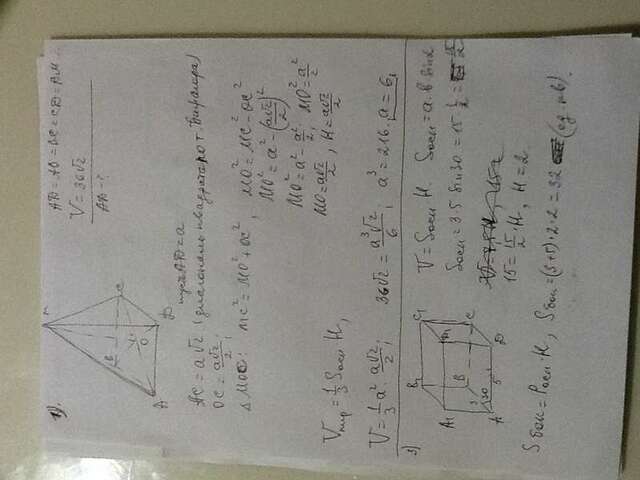 1).
AB = AD = DC = CB = AM
V = 36√2
AB - ?
A
B
C
D
O
M
пусть AB = a
AC = a√2 (диагональ квадрата от Пифагора)
OC = a√2/2;
Δ MOC: MC² = MO² + OC², MO² = MC² - OC²
MO² = a² - (a√2/2)²
MO² = a² - a²/2, MO² = a²/2
MO = a√2/2, H = a√2/2
Vпир = 1/3 Sосн H,
V = 1/3 a² a√2/2; 36√2 = a³√2/6; a³ = 216, a = 6,
3)
A₁
B₁
C₁
A
B
C
D
3
30
5
V = Sосн H. Sосн = a·b sin α
Sосн = 3·5 sin 30 = 15 1/2 = 15/2
15 = 15/2 · H, H = 2
Sбок = Pосн · H, Sбок = (3+5)·2·2 = 32 (ед. кв).